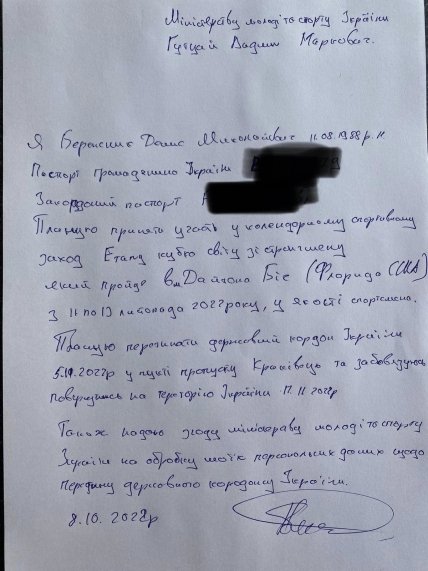 Міністерству молоді та спорту України
Гутцайт Вадим Маркович.
Я Беренсник Денис Миколайович 11.08.1988 р.н
Паспорт громадянина України
Закордонний паспорт
Планую прийняти участь у календарному спортивному
заході Етапу кубку світу зі стронгмену
який пройде в м Дайтона Біч (Флорида США)
з 11 по 13 листопада 2022 року, у якості спортсмена.
Планую перетинати державний кордон України
5.11.2022р у пункті пропуску Краківець та забовязуюсь
повернутись на територію України 17.11.2022р
Також надаю згоду міністраву молоді та спорту
України на обробку моїх персональних даних щодо
перетину державного кордону України.
8.10.2022р